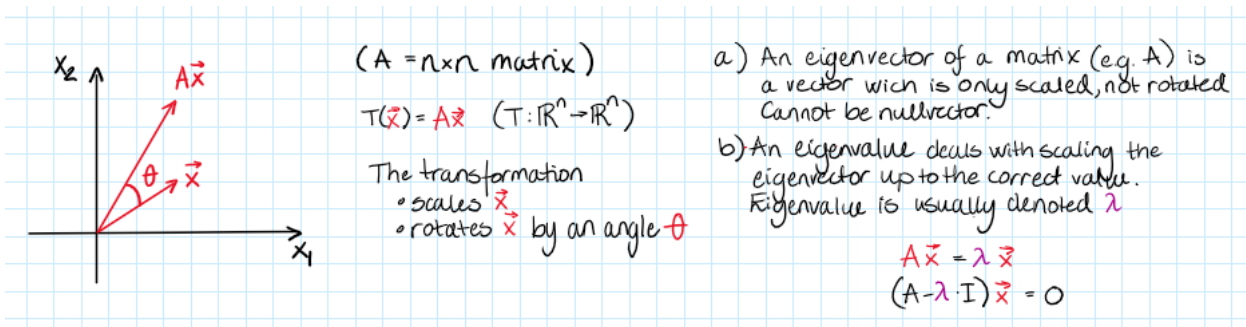 x₂
Ax⃗
θ
x⃗
x₁
(A = n×n matrix)
T(x⃗) = Ax⃗ (T: ℝⁿ→ℝⁿ)
The transformation
• scales x⃗
• rotates x⃗ by an angle θ
a) An eigenvector of a matrix (e.g. A) is
a vector wich is only scaled, not rotated
Cannot be nullvector.
b) An eigenvalue deals with scaling the
eigenvector up to the correct value.
Eigenvalue is usually denoted λ
Ax⃗ = λx⃗
(A-λ·I)x⃗ = 0